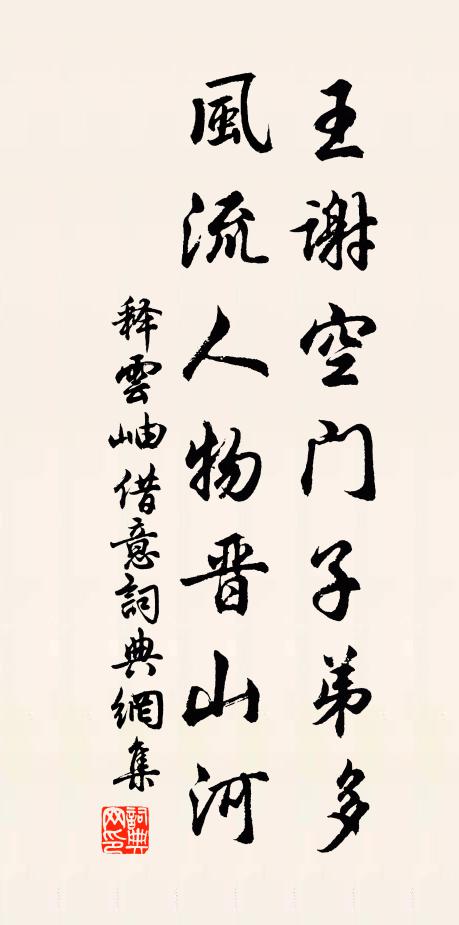 王谢空门子弟多
風流人物晋山河
释雲岫借意詞典網集
詞典网印